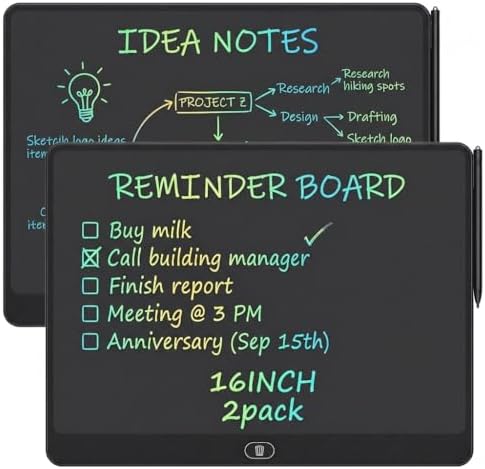 IDEA NOTES
PROJECT Z
Research
Research
hiking spots
Design
Drafting
Sketch logo
Sketcih logo ideas
REMINDER BOARD
Buy milk
Call building manager
Finish report
Meeting @ 3 PM
Anniversary (Sep 15th)
16INCH
2pack